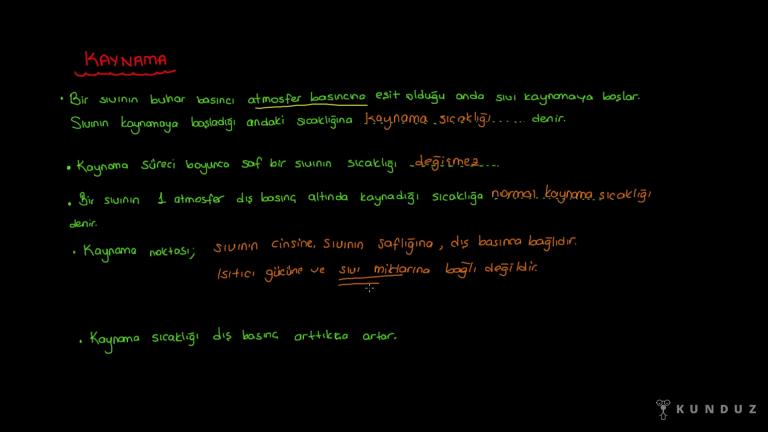 KAYNAMA
• Bir sıvının buhar basıncı atmosfer basıncına eşit olduğu anda sıvı kaynamaya başlar.
Sıvının kaynamaya başladığı andaki sıcaklığına kaynama sıcaklığı...... denir.
• Kaynama süreci boyunca saf bir sıvının sıcaklığı değişmez...
• Bir sıvının 1 atmosfer dış basınç altında kaynadığı sıcaklığa normal kaynama sıcaklığı
denir.
• Kaynama noktası; sıvının cinsine, sıvının saflığına, dış basınca bağlıdır.
Isıtıcı gücüne ve sıvı miktarına bağlı değildir.
• Kaynama sıcaklığı dış basınç arttıkça artar.
KUNDUZ